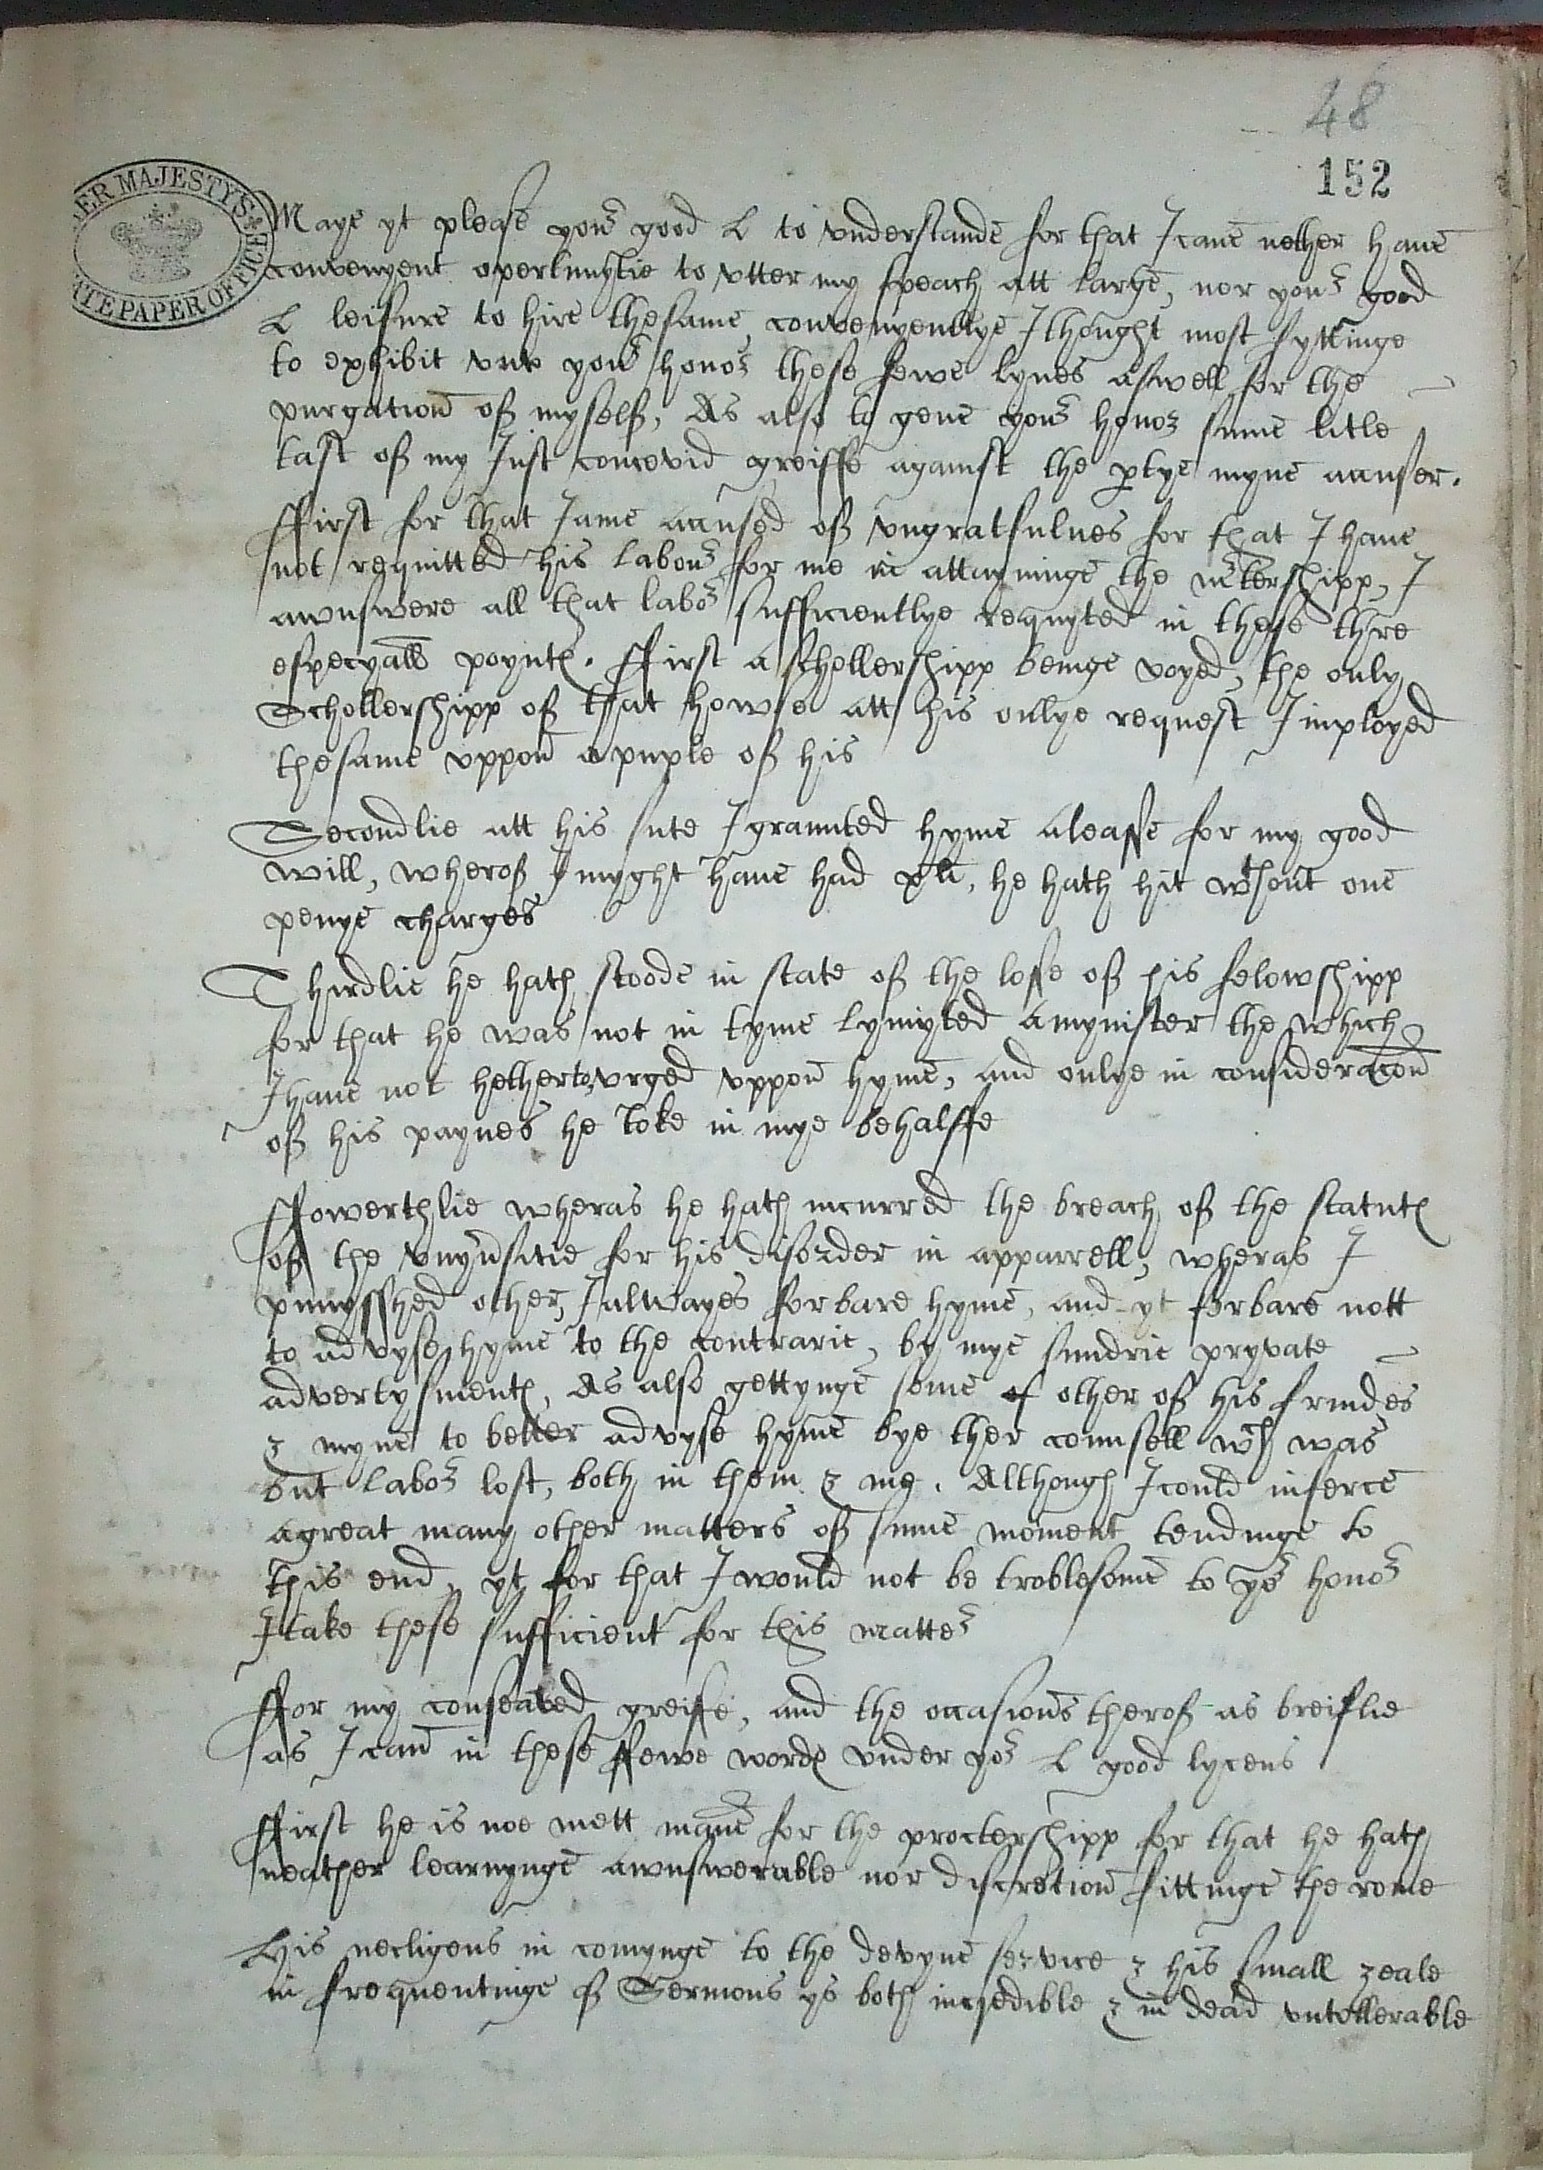 48
152
HER MAJESTY'S
STATE PAPER OFFICE
Maye yt please your good L to vnderstande for that I cane nether have
convenyent opertunytie to vtter my speach att large, nor your good
L leisure to hire thesame convenyentlye I thought most fyttinge
to exhibit vnto your honor these fewe lynes aswell for the
purgation of myself, As also to geve your honor sume litle
tast of my Just concevid greiffe against the ptye myne accuser.
ffirst for that I ame accused of vngratfulnes for that I have
not requitted his labour for me in attayninge the mrshipp, I
awnswere all that labor sufficientlye requyted in these thre
especyall poyntes. ffirst a schollershipp beinge voyed, the only
Schollershipp of that howse att his onlye request I imployed
thesame vppon a puple of his
Secondlie att his sute I graunted hyme a leasse for my good
will, wherof I myght have had xli, he hath hit wthout one
penye charges
Thirdlie he hath stoode in state of the losse of his felowshipp
for that he was not in tyme lymyted a mynister the which
I have not hetherto vrged vppon hyme, and onlye in consideracon
of his paynes he toke in mye behalffe
ffowerthlie wheras he hath incurred the breach of the statutes
of the vnyversitie for his disorder in apparrell, wheras I
punysshed other, I alwayes forbare hyme, and yt forbare nott
to advyse hyme to the contrarie, by mye sundrie pryvate
advertysmentes, As also gettynge some of other of his frindes
& myne to better advyse hyme bye ther counsell wch was
but labor lost, both in them & me. Allthough I could inferce
a great many other matters of sume moment tendinge to
this end, yt for that I would not be troblesome to yor honor
I take these sufficient for this matter
ffor my conseaved greiffe, and the occasions therof as breiflie
as I can in these ffewe wordes vnder yor L good lycens
ffirst he is noe mett mane for the proctershipp for that he hath
neather learnynge awnswerable nor discretion fittinge the rome
His necligens in comynge to the devyne service & his small zeale
in frequentinge of Sermons ys both incredible & in dead vntollerable